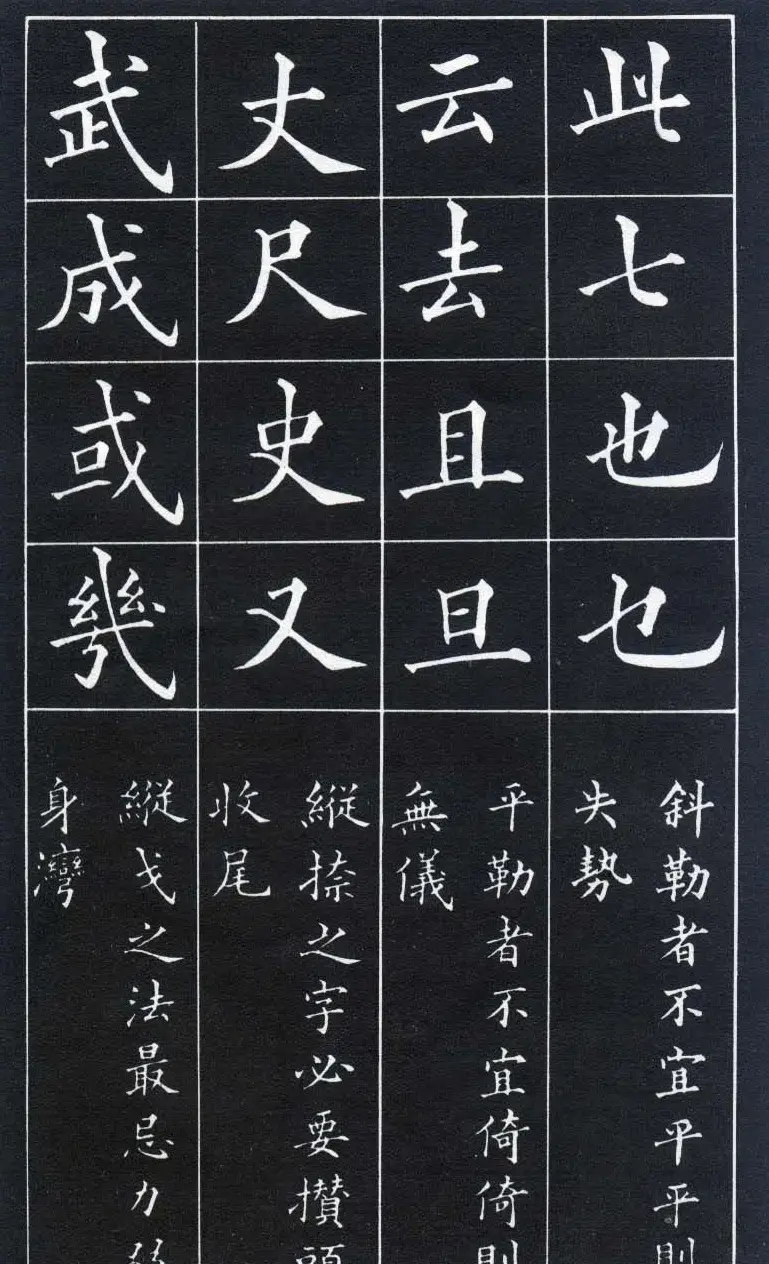 此七也乜
斜勒者不宜平平則
失勢
云去且旦
平勒者不宜倚倚則
無儀
丈尺史又
縱捺之字必要攢頭
收尾
武成或幾
縱戈之法最忌力
身灣